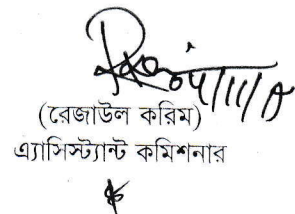 (রেজাউল করিম)
এ্যাসিস্ট্যান্ট কমিশনার